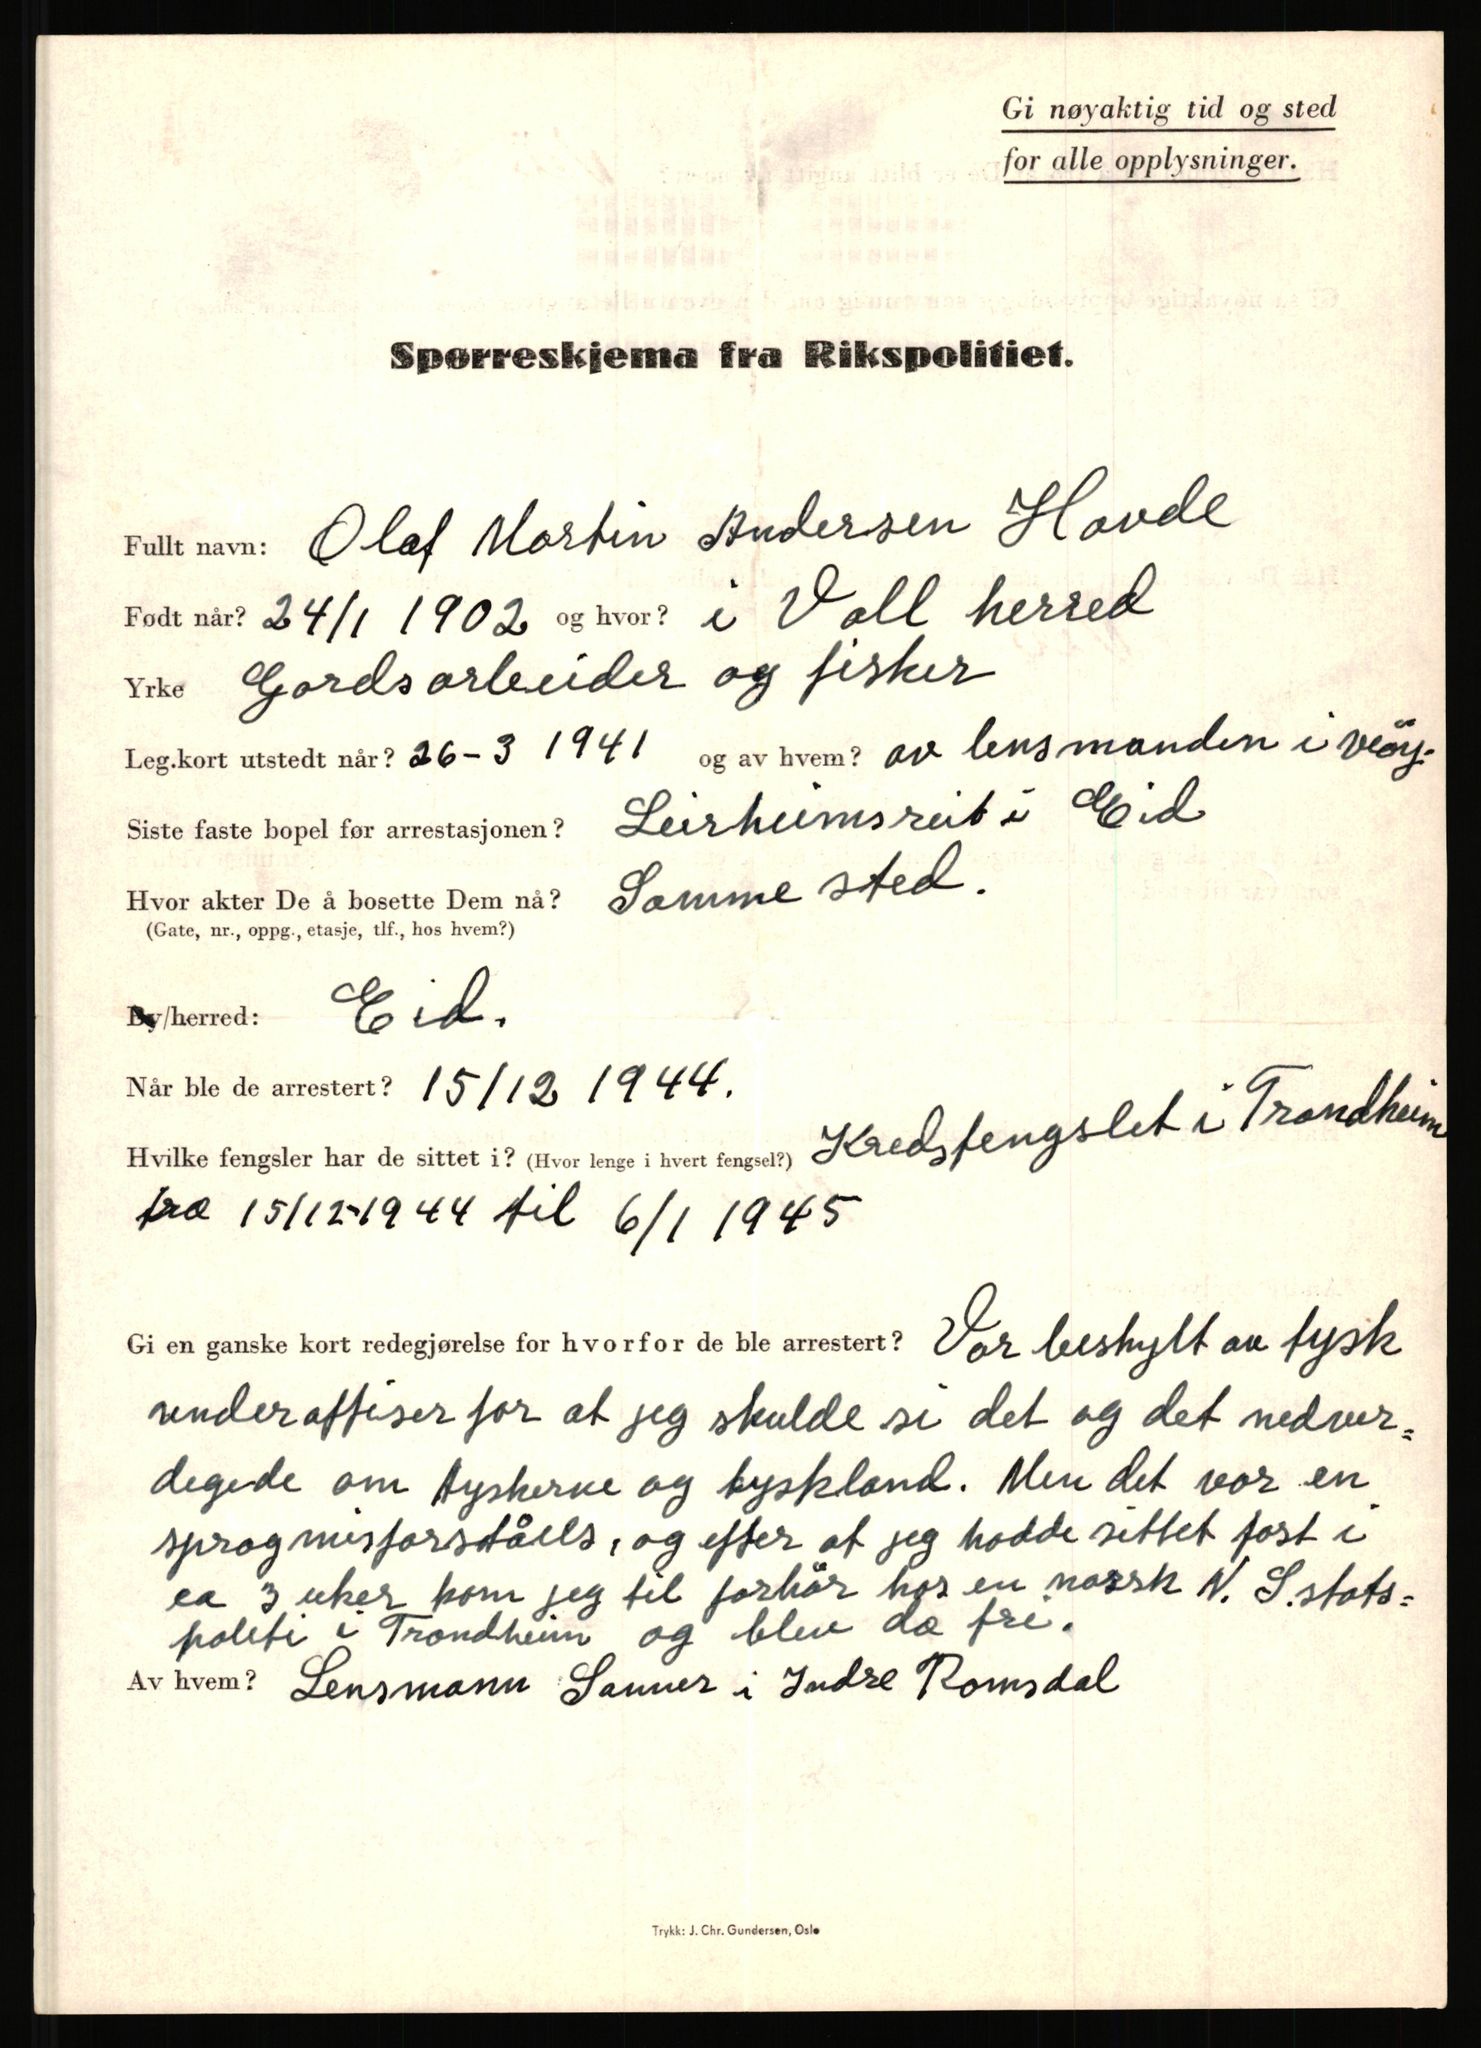 Gi nøyaktig tid og sted
for alle opplysninger.
Spørreskjema fra Rikspolitiet.
Fullt navn: Olaf Martin Andersen Hovde
Født når? 24/1 1902 og hvor? i Voll herred
Yrke Gardsarbeider og fisker
Leg.kort utstedt når? 26-3 1941 og av hvem? av lensmanden i Veøy.
Siste faste bopel før arrestasjonen? Leirheimsreit i Eid
Hvor akter De å bosette Dem nå? Samme sted.
(Gate, nr., oppg., etasje, tlf., hos hvem?)
By/herred: Eid.
Når ble de arrestert? 15/12 1944.
Hvilke fengsler har de sittet i? (Hvor lenge i hvert fengsel?) Kredsfengslet i Trondheim
fra 15/12-1944 til 6/1 1945
Gi en ganske kort redegjørelse for hvorfor de ble arrestert? Var beskylt av tysk
underoffiser for at jeg skulde si det og det nedver=
degede om tyskerne og tyskland. Men det var en
sprogmisforståels, og efter at jeg hadde sittet fast i
ca 3 uker kom jeg til forhör hos en norsk N. S. stats=
politi i Trondheim og blev da fri.
Av hvem? Lensmann Sanner i Indre Romsdal
Trykk: J. Chr. Gundersen, Oslo